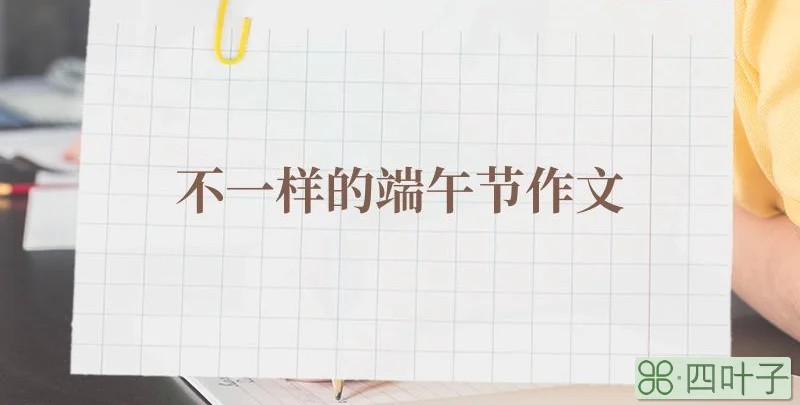 不一样的端午节作文
四叶子